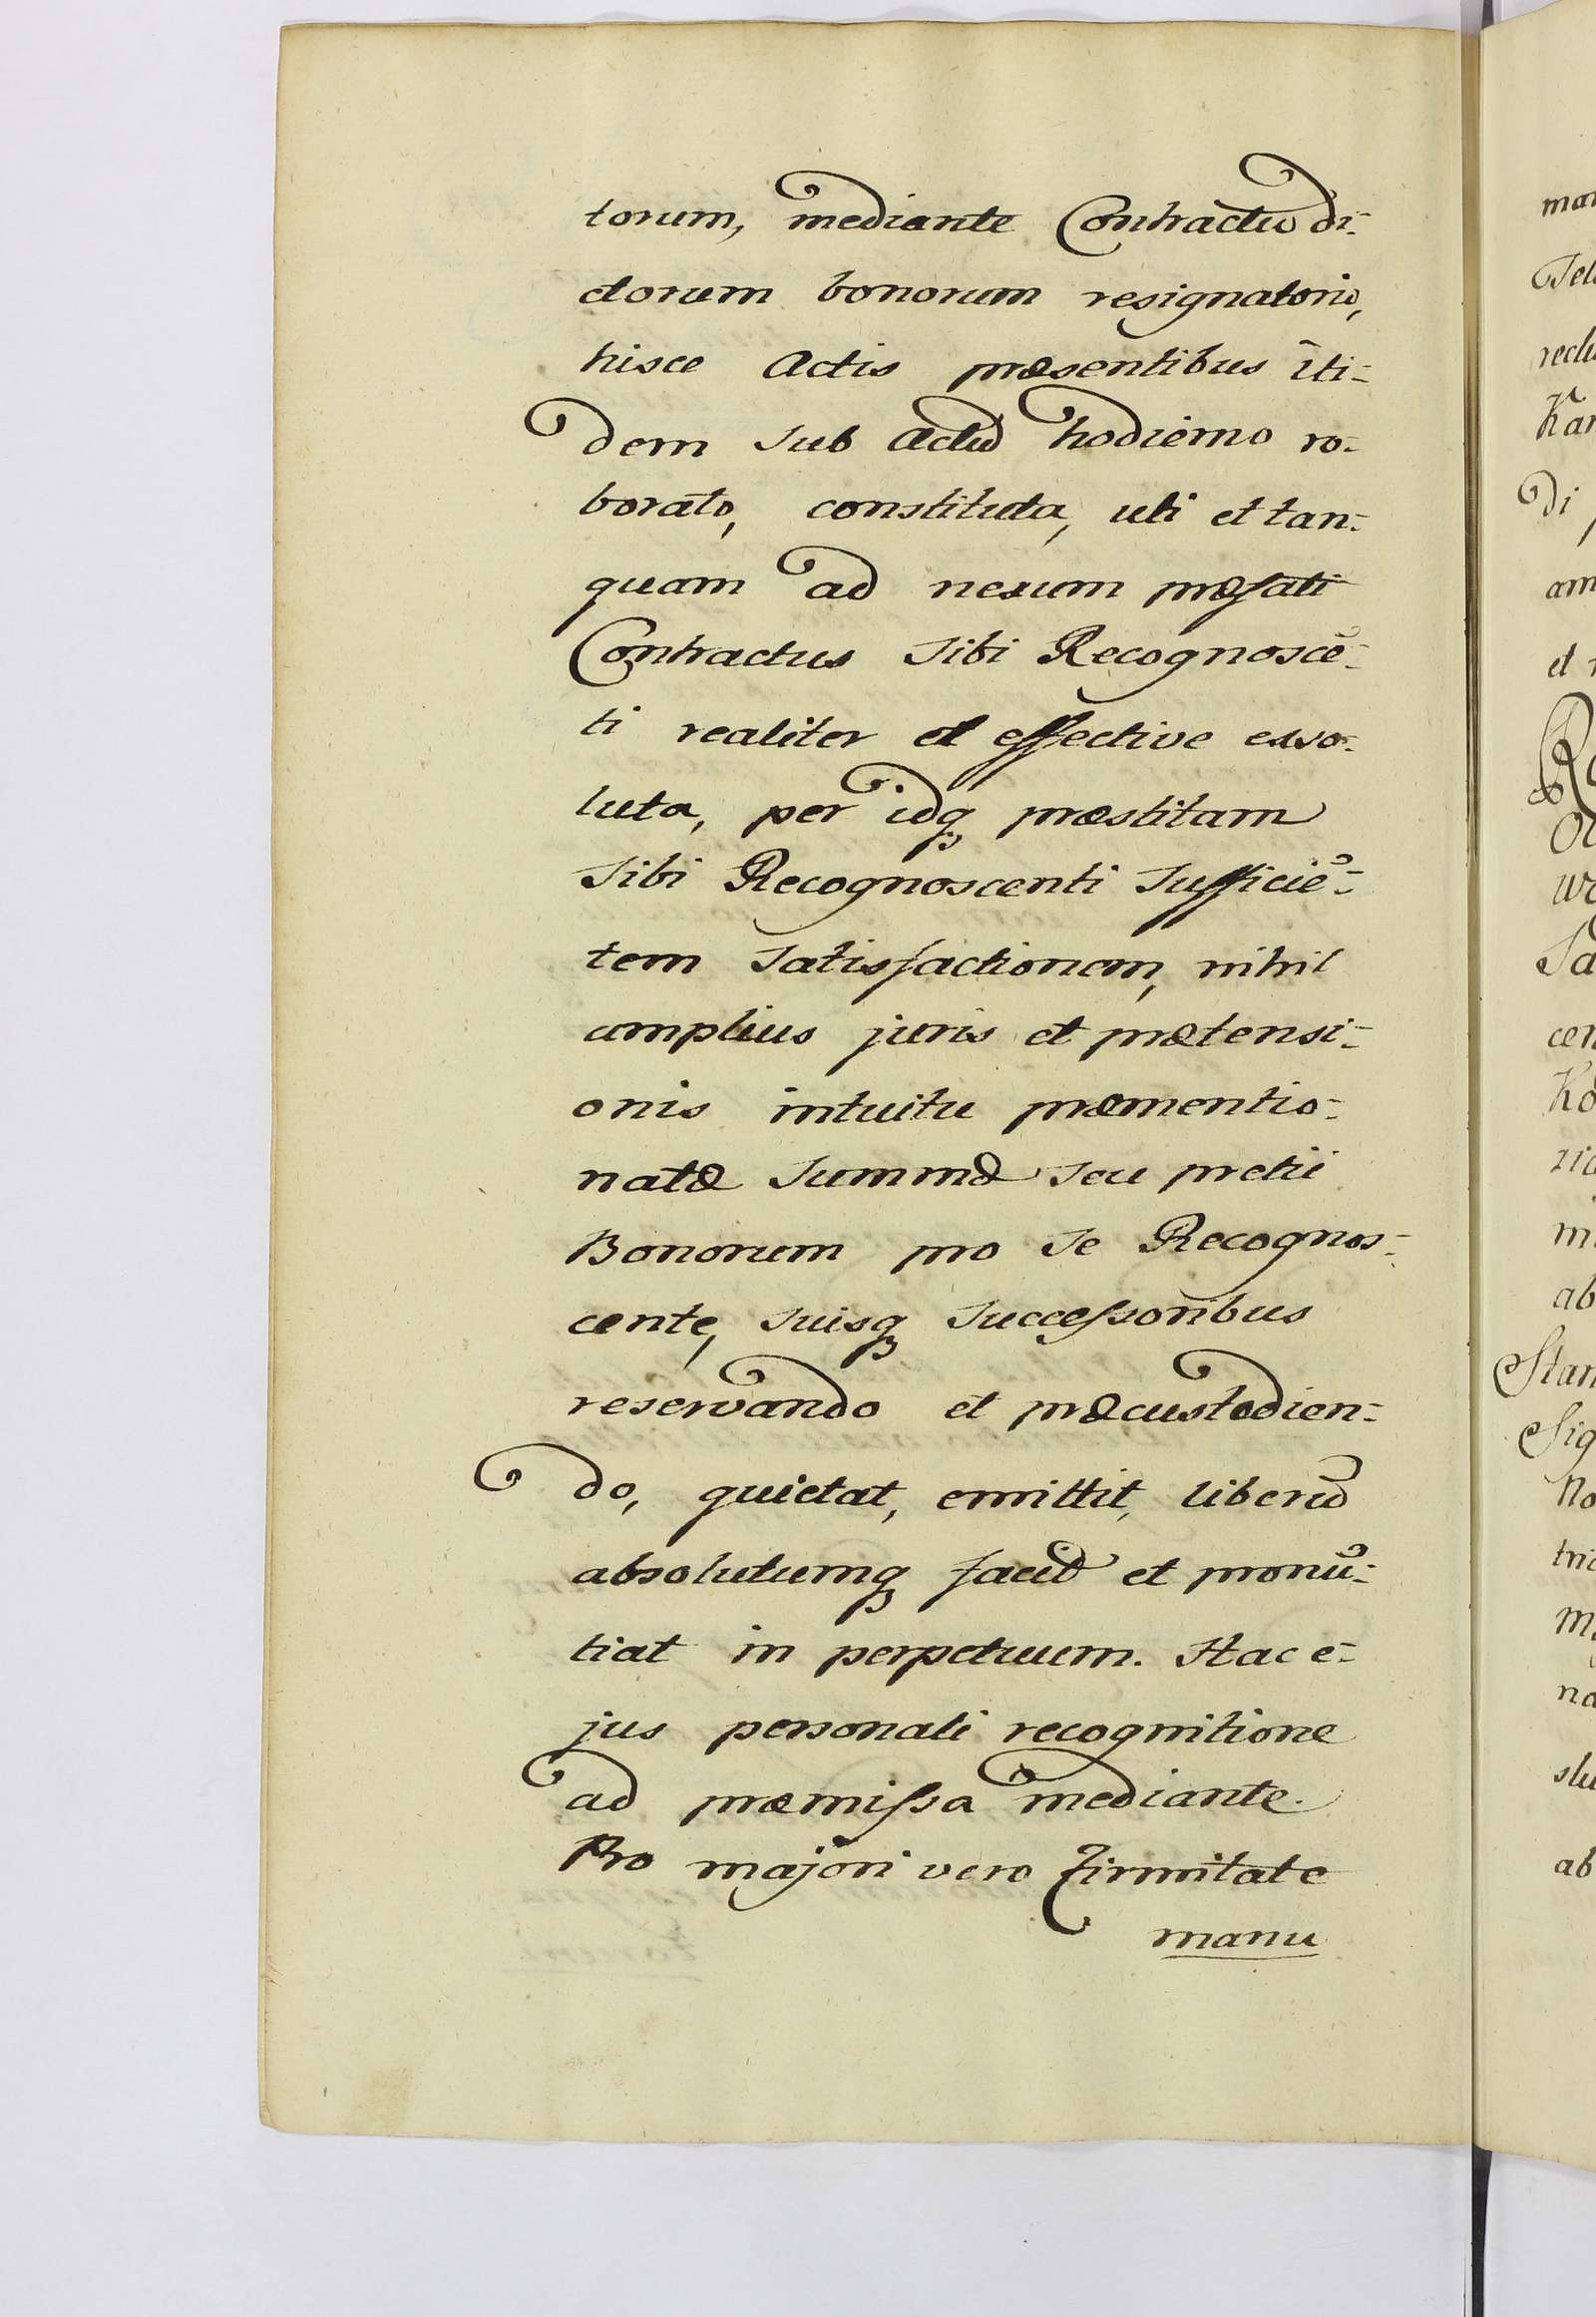 torum, mediante Contractu di-
ctorum bonorum resignatorio,
hisce Actis præsentibus iti-
dem sub Actu hodierno ro-
borato, constituta, uti et tan-
quam ad nexum præfati
Contractus sibi Recognoscē-
ti realiter et effective exso-
luta, per idq3 præstitam
sibi Recognoscenti sufficiē-
tem satisfactionem, nihil
amplius juris et prætensi-
onis intuitu præmentio-
natæ summæ seu pretii
Bonorum pro se Recognos-
cente, suisq3 successoribus
reservando et præcustodien-
do, quietat, emittit, liberū
absolutumq3 facit et pronū-
tiat in perpetuum. Hac e-
jus personali recognitione
ad præmissa mediante.
Pro majori vero Firmitate
manu
mar
Tel
Kar
Di
am
et
Sa
cen
Ko
ab
Stan
Sig
No
na
ab